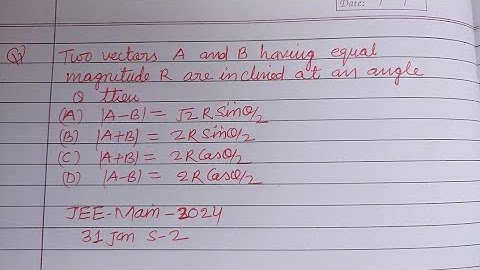 Date: / /
Q) Two vectors A and B having equal
magnitude R are inclined at an angle
θ then
(A) |A-B| = √2 R Sinθ/2
(B) |A+B| = 2R Sinθ/2
(C) |A+B| = 2R Cosθ/2
(D) |A-B| = 2R Cosθ/2
JEE-Main-2024
31 Jan S-2